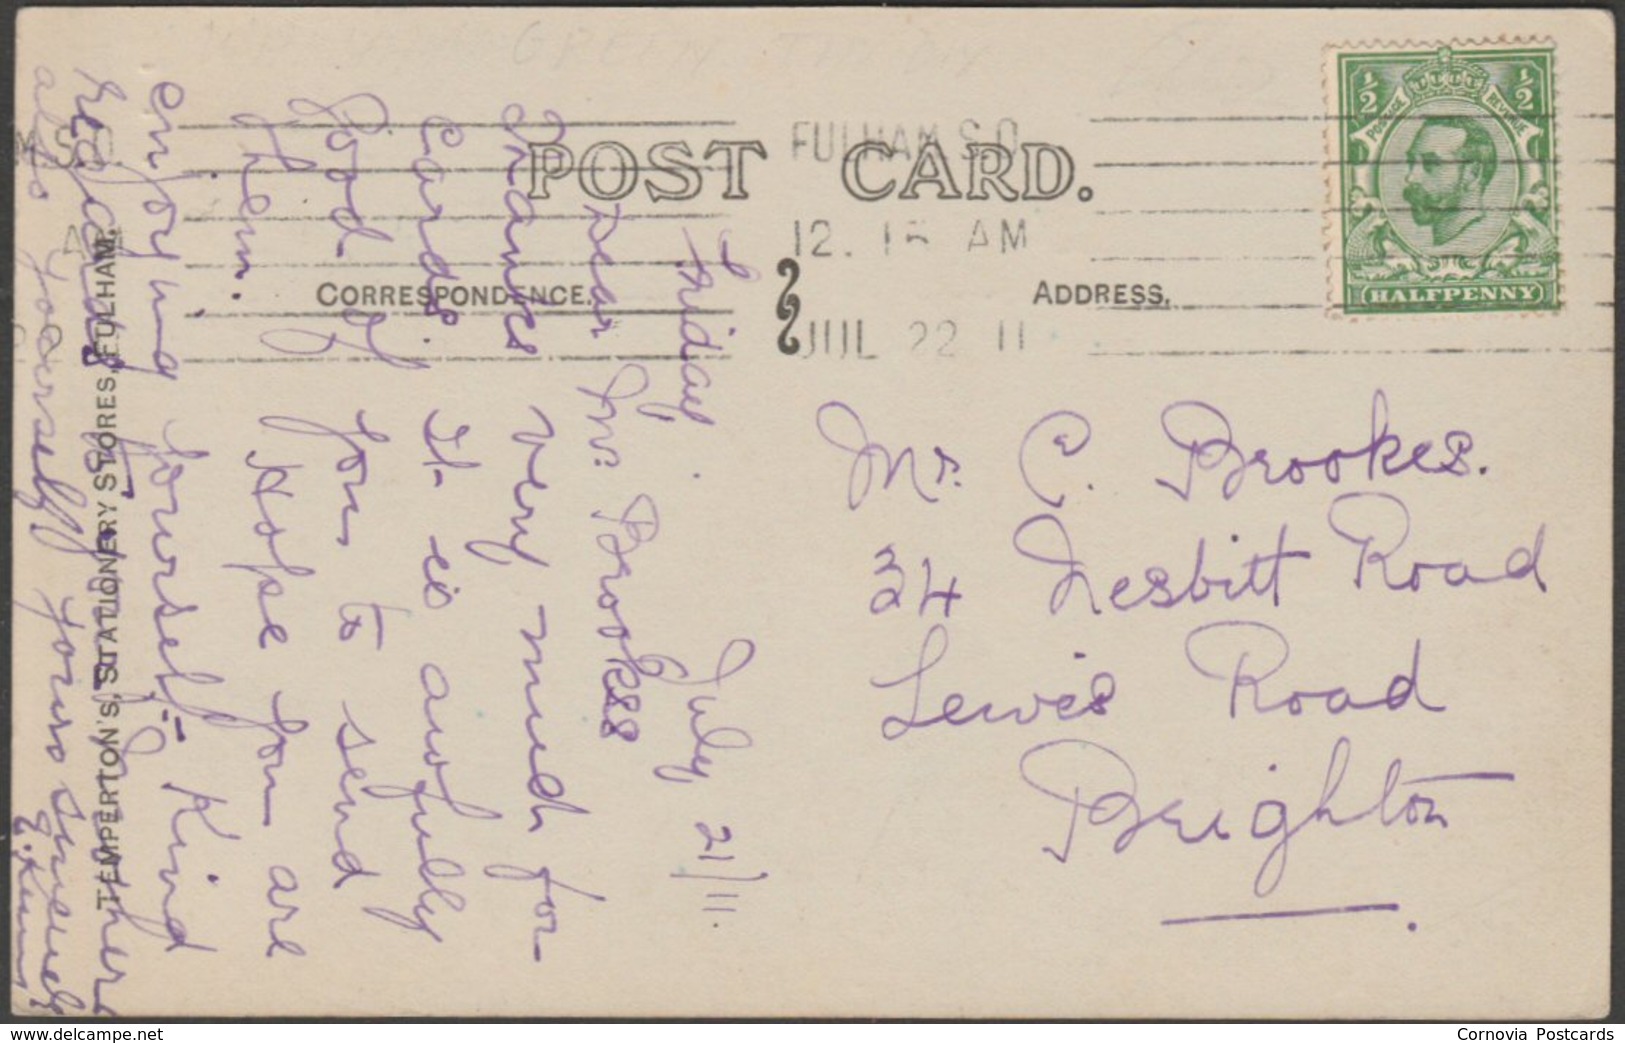 POST CARD.
FULHAM S.O
12. 15 AM
JUL 22 11
CORRESPONDENCE.
ADDRESS.
½ ½
POSTAGE REVENUE
HALFPENNY
Friday. July 21/11.
Dear Mr. Brookes
Thanks very much for
Cards. It is awfully
good of you to send
them. Hope you are
enjoying yourself. Kind
regards to your Brother
also yourself yours sincerely
Mr. C. Brookes.
34 Nesbitt Road
Lewis Road
Brighton
TEMPERTON'S, STATIONERY STORES, FULHAM.
www.delcampe.net
Cornovia Postcards